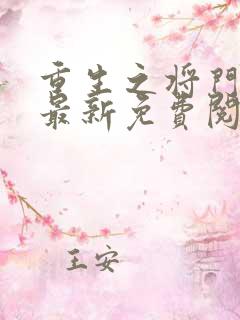 重生之将门
最新免費阅
王安